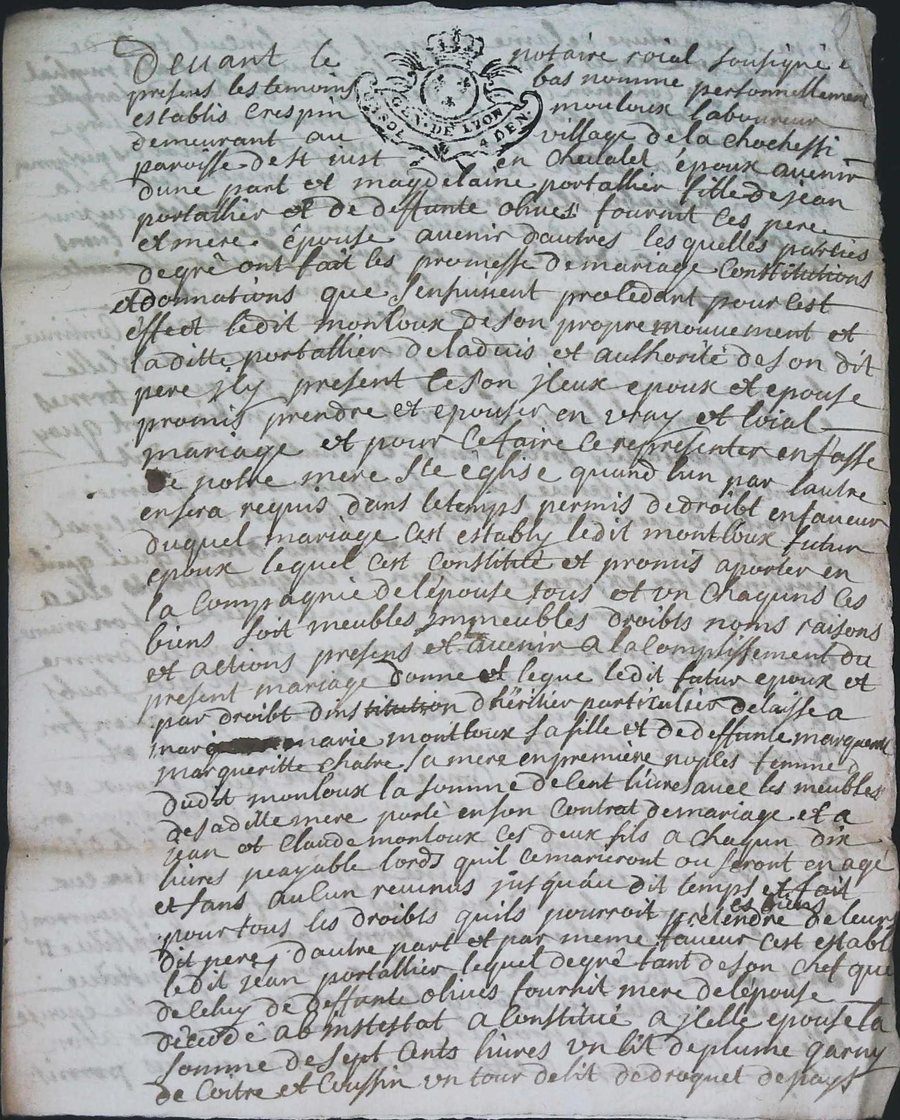 Devant le notaire roial sousigné e
presens les temoins bas nomme personnellement
establis Crespin mouloux laboureur
demeurant au village de la Chochetti
paroisse de St just en chevalet époux avenir
dune part et magdelaine portallier fille de jean
portallier et de deffunte olives fournit ces pere
et mere épouse avenir dautres lesquelles parties
de gré ont fait les promesse de mariage Constitutions
et donnations que sensuivent procedant pour cest
effect ledit monloux de son propre mouvement et
laditte portallier de ladvis et authorité de son dit
pere jly present ce son jleux epoux et epouse
promis prendre et epouser en vray et loial
mariage et pour ce faire ce representer en fasse
de notre mere Ste église quand lun par lautre
en sera requis dans le temps permis de droibt en faveur
duquel mariage cest estably ledit montloux futur
epoux lequel cest constitué et promis aporter en
la Compagnie de lépouse tous et un chaquns ces
biens soit meubles immeubles droibts noms raisons
et actions presens et avenir a lacomplissement du
present mariage donne et legue ledit futur epoux et
par droibt dinstitution dhéritier particulier delaisse a
marie montloux sa fille et de deffunte marguerite
margueritte chatre sa mere en première nopces femme d
dudit monloux la somme de cent livres avec les meubles
de sa ditte mere porté en son Contrat de mariage et a
jean et Claude monloux ces deux fils a chaqun dix
livres peayable lords quil ce marieront ou seront en agé
et sans aucun revenus jusquau dit temps et fait
ces biens
pour tous les droibts quils pourroit prétendre de leurs
dit pere, dautre part et par meme faveur cest establ
ledit jean portallier lequel de gré tant de son chef que
de celuy de deffunte olives fournit mere de lépouse
décédé ab instestat a constitué a jcelle epouse la
somme de sept cents livres un lit de plume garny
de Coitre et Coussin un tour de lit de droquet de pays
GEN. DE LYON
4 DEN.